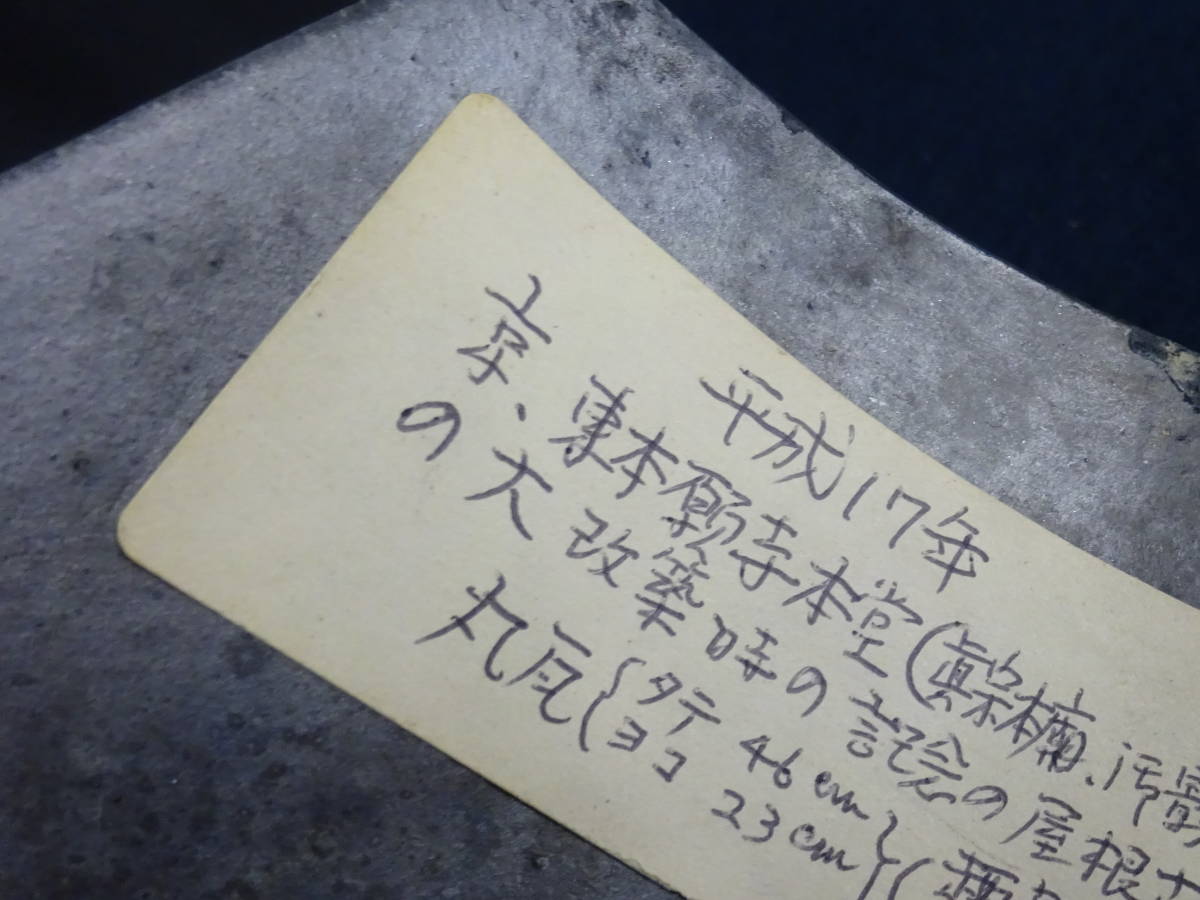 平成17年
京、東本願寺本堂(真宗本廟、
の大改築時の記念の屋根
丸瓦{タテ 46cm}(
ヨコ 23cm